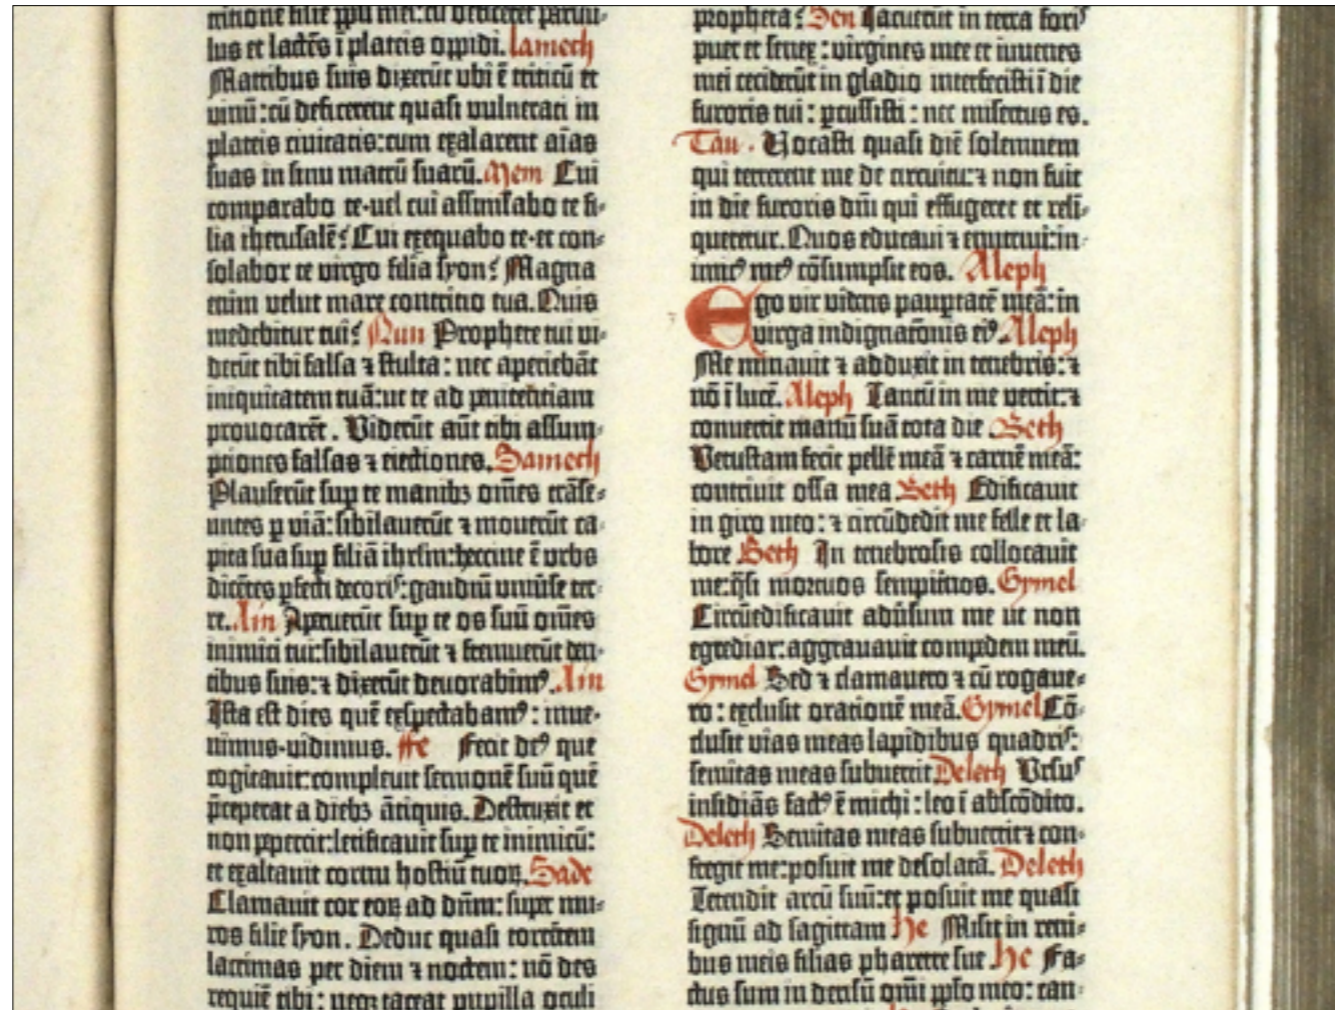 tritione filie ppli mei: cū deficeret parvu-
lus et lactēs ī plateis oppidi. lamech
Matribus suis dixerūt ubi ē triticū et
vinū: cū deficerent quasi vulnerati in
plateis civitatis: cum exalarent aīas
suas in sinu matrū suarū. Mem Cui
comparabo te· vel cui assimilabo te fi-
lia iherusalē? Cui exequabo te· et con-
solabor te virgo filia syon? Magna
enim velut mare contritio tua. Quis
medebitur tui? Nun Prophete tui vi-
derūt tibi falsa ⁊ stulta: nec aperiebāt
iniquitatem tuā: ut te ad penitētiam
provocarēt. Viderūt aūt tibi assum-
ptiones falsas ⁊ eiectiones. Samech
Plauserūt sup te manibꝫ om̄es trāse-
untes p viā: sibilaverūt ⁊ moverūt ca-
pita sua sup filiā ihrlm: heccine ē urbs
dicētes pfecti decorꝰ: gaudiū univ̄se ter-
re. Ain Aperuerūt sup te os suū om̄es
inimici tui: sibilaverūt ⁊ fremuerūt den-
tibus suis: ⁊ dixerūt devorabimꝰ. Ain
Ista est dies quē exspectabamꝰ: inve-
nimus· vidimus. ffe Fecit deꝰ que
cogitavit: complevit sermonē suū quē
p̄ceperat a diebꝫ ātiquis. Destruxit et
non ppercit: letificavit sup te inimicū:
et exaltavit cornu hostiū tuoꝝ. Sade
Clamavit cor eoꝝ ad dn̄m: super mu-
ros filie syon. Deduc quasi torrētem
lacrimas per diem ⁊ noctem: nō des
requiē tibi: neqꝫ taceat pupilla oculi
propheta? Sen Jacuerūt in terra forꝭ
puer et senex: virgines mee et iuvenes
mei ceciderūt in gladio interfecisti ī die
furoris tui: pcussisti: nec misertus es.
Tau. Vocasti quasi diē solemnem
qui terrerent me de circuitu: ⁊ non fuit
in die furoris dn̄i qui effugeret et reli-
queretur. Quos educavi ⁊ enutrivi: in-
imicꝰ meꝰ cōsumpsit eos. Aleph
Ego vir videns paupertatē meā: in
virga indignatōnis eiꝰ. Aleph
Me minavit ⁊ adduxit in tenebris: ⁊
nō ī lucē. Aleph Tantū in me vertit: ⁊
convertit manū suā tota die. Beth
Vetustam fecit pellē meā ⁊ carnē meā:
contrivit ossa mea Beth Edificavit
in giro meo: ⁊ circūdedit me felle et la-
bore Beth In tenebrosis collocavit
me: q̄si mortuos sempit̄nos. Gymel
Circūedificavit adv̄sum me ut non
egrediar: aggravavit compedem meū.
Gymel Sed ⁊ clamavero ⁊ cū rogave-
ro: exclusit orationē meā. Gymel Cō-
clusit vias meas lapidibus quadrꝭ:
semitas meas subvertit Deleth Ursuꝰ
insidiās factꝰ ē michi: leo ī abscōdito.
Deleth Semitas meas subvertit ⁊ con-
fregit me: posuit me desolatā. Deleth
Tetendit arcū suū: et posuit me quasi
signū ad sagittam he Misit in reni-
bus meis filias pharetre sue. he Fa-
ctus sum in derisū om̄i pplo meo: can-